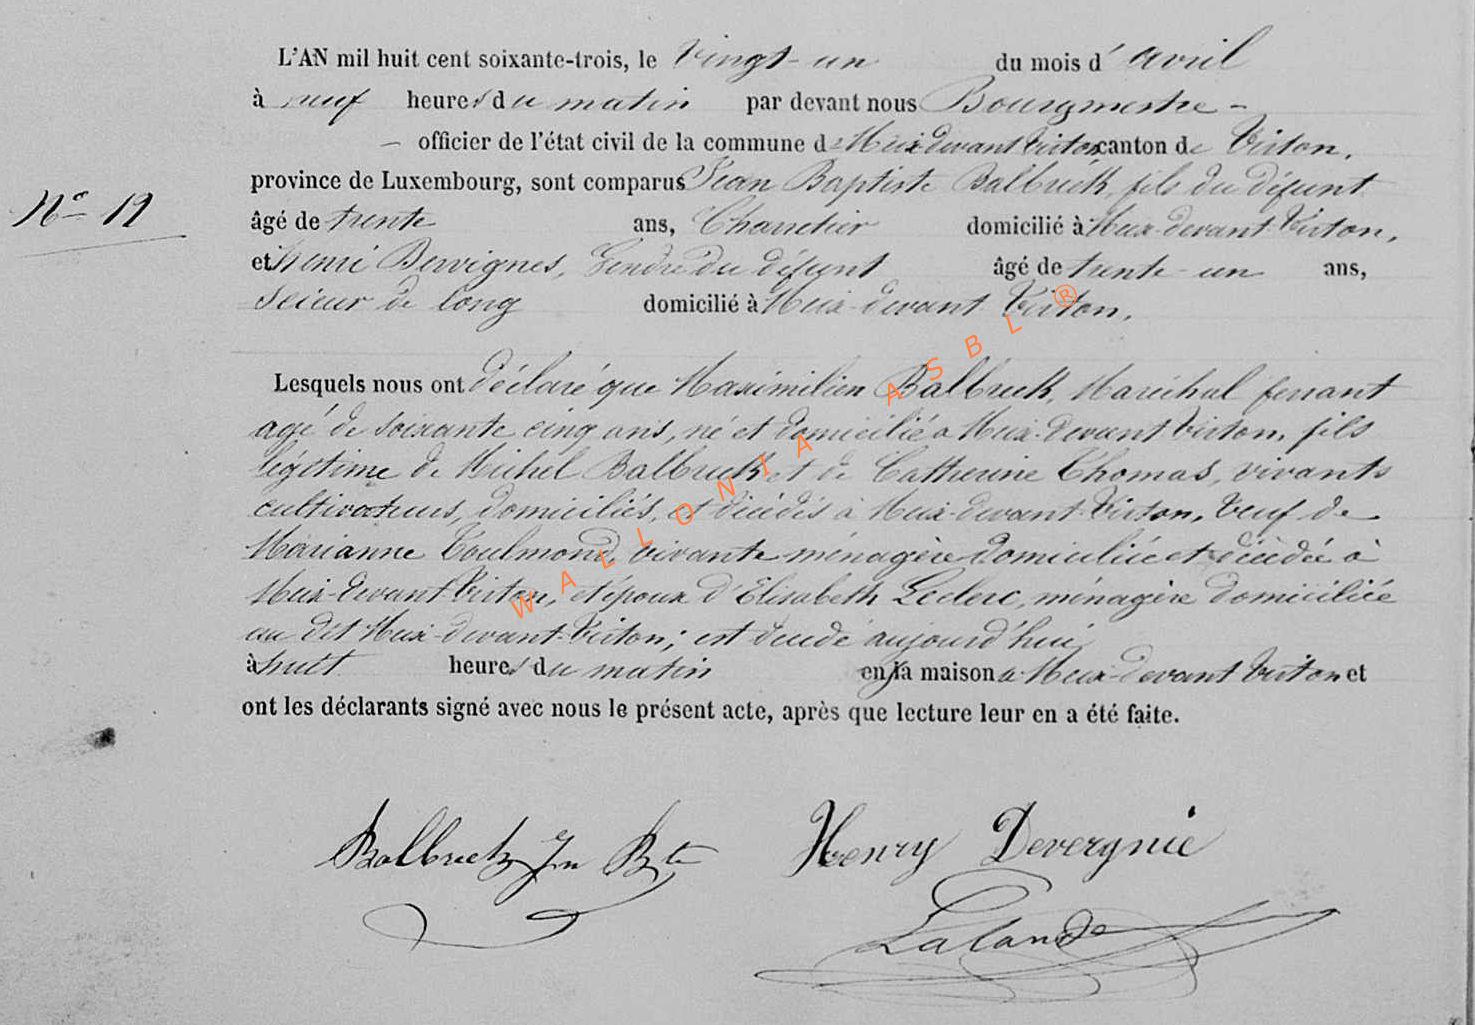 L'AN mil huit cent soixante-trois, le vingt-un du mois d'avril
à neuf heures du matin par devant nous Bourgmestre -
- officier de l'état civil de la commune de Meix devant Virton canton de Virton,
province de Luxembourg, sont comparus Jean Baptiste Balbuck, fils du défunt
N° 12
âgé de trente ans, Charretier domicilié à Meix-devant-Virton,
et henri Dervignes, Gendre du défunt âgé de trente-un ans,
Scieur de long domicilié à Meix-devant Virton.
Lesquels nous ont déclaré que Maximilien Balbuck, Maréchal ferrant
agé de soixante cinq ans, né et domicilié à Meix-devant Virton, fils
légitime de Michel Balbuck et de Catherine Thomas, vivants
cultivateurs, domiciliés, et décédés à Meix-devant-Virton, veuf de
Marianne Toulmond, vivante ménagère domiciliée et décédée à
Meix-devant Virton, et époux d'Elisabeth Leclerc, ménagère domiciliée
au dit Meix-devant-Virton; est decedé aujourd'hui
à huit heures du matin en sa maison à Meix-devant Virton et
ont les déclarants signé avec nous le présent acte, après que lecture leur en a été faite.
Balbuck Jn Bte Henry Devergnie
Lalande
WALLONIA ASBL ®